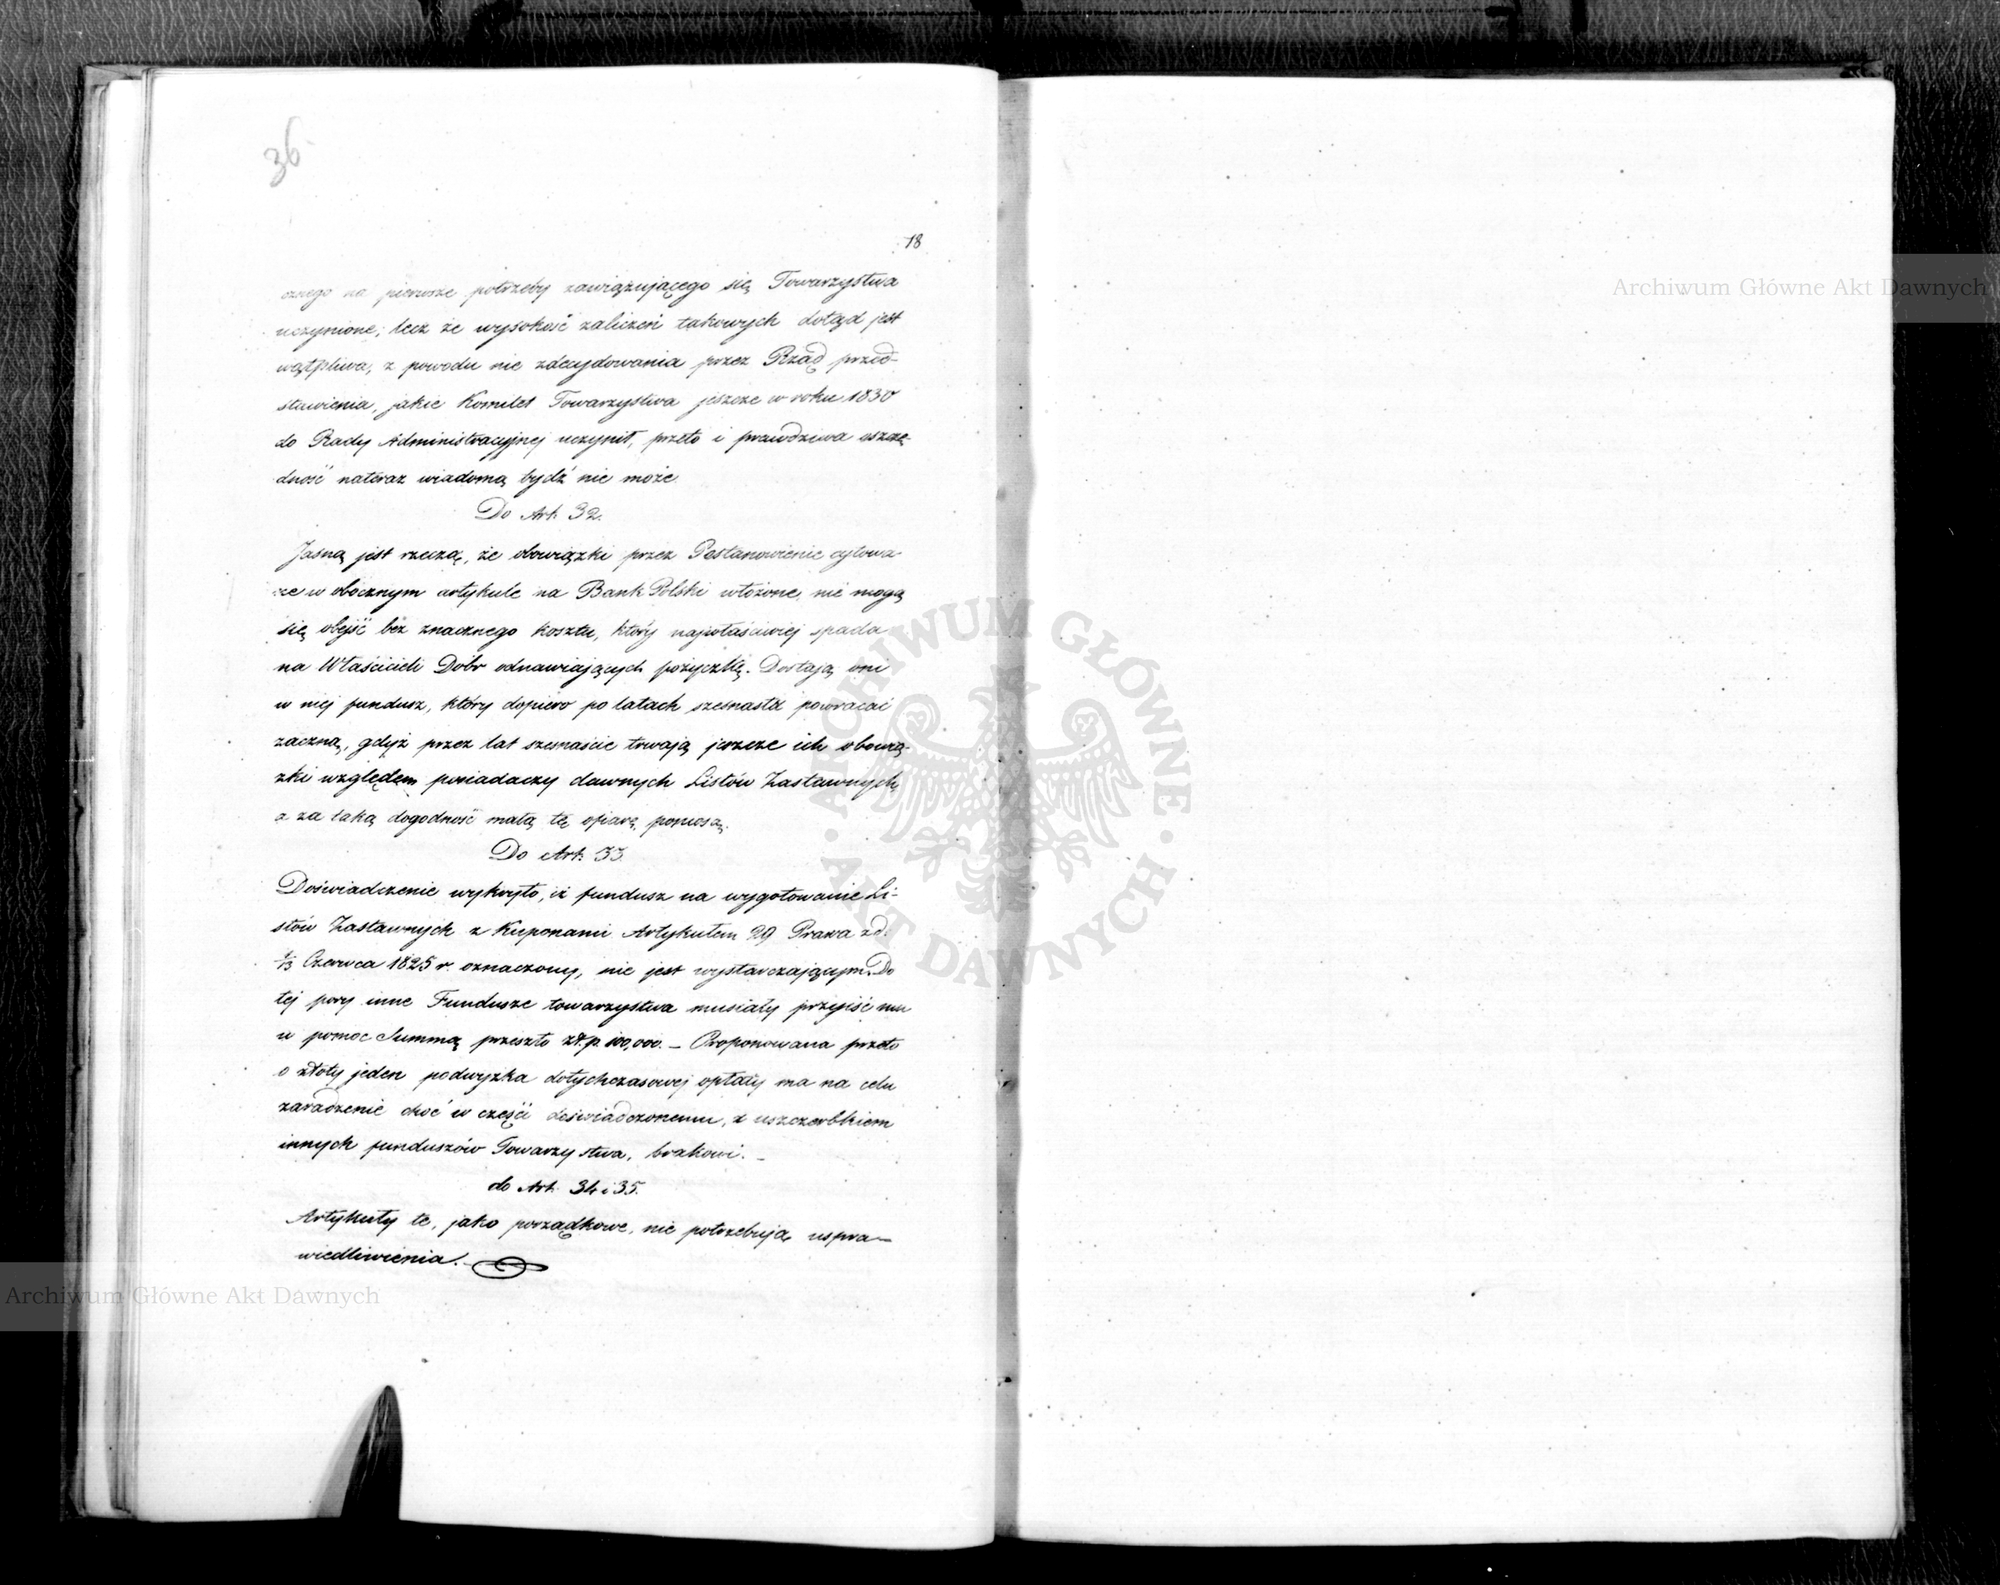 36
18
cznego na pierwsze potrzeby zawiązującego się Towarzystwa
uczynione; lecz że wysokość zaliczeń takowych dotąd jest
wątpliwa, z powodu nie zdecydowania przez Rząd przed-
stawienia, jakie Komitet Towarzystwa jeszcze w roku 1830
do Rady Administracyjnej uczynił, przeto i prawdziwa oszczę-
dność nateraz wiadomą bydź nie może.
Do Art. 32.
Jasną jest rzeczą, że obowiązki przez Postanowienie cytowa-
ne w obocznym artykule na Bank Polski włożone, nie mogą
się obejść bez znacznego kosztu, który najwłaściwiej spada
na Właścicieli Dóbr odnawiających pożyczkę. Dostają oni
w niej fundusz, który dopiero po latach szesnastu powracać
zaczną, gdyż przez lat szesnaście trwają jeszcze ich obowią-
zki względem posiadaczy dawnych Listów Zastawnych,
a za taką dogodność małą tę ofiarę ponoszą.
Do Art. 33.
Doświadczenie wykryło, iż fundusz na wygotowanie Li-
stów Zastawnych z Kuponami Artykułem 29 Prawa z d.
1/13 Czerwca 1825 r. oznaczony, nie jest wystarczającym. Do
tej pory inne Fundusze towarzystwa musiały przyjść mu
w pomoc Summą przeszło zł.p. 100,000. – Proponowana przeto
o złoty jeden podwyżka dotychczasowej opłaty ma na celu
zaradzenie choć w części doświadczonemu, z uszczerbkiem
innych funduszów Towarzystwa, brakowi. –
do Art. 34 i 35.
Artykuły te, jako porządkowe, nie potrzebują uspra-
wiedliwienia. –
Archiwum Główne Akt Dawnych
ARCHIWUM GŁÓWNE · AKT DAWNYCH ·
Archiwum Główne Akt Dawnych